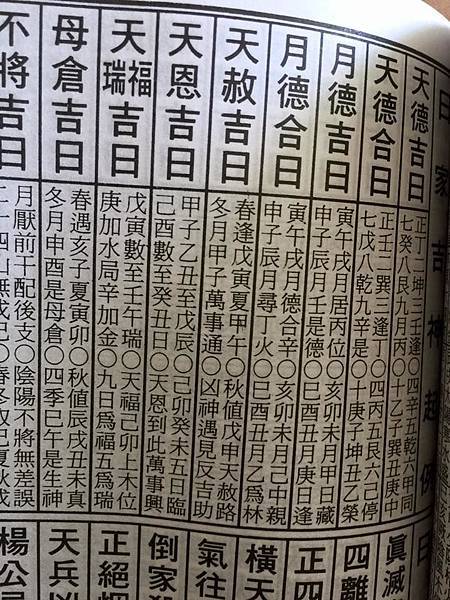 日家吉神起例
天德吉日
正丁二坤三壬逢〇四辛五乾六甲同
七癸八艮九月丙〇十乙子巽丑庚中
天德合日
正壬二巽三逢〇四丙五艮六己停
七戊八乾九辛是〇十庚子坤丑乙榮
月德吉日
寅午戌月居丙位〇亥卯未月甲日藏
申子辰月壬是德〇巳酉丑月庚日逢
月德合日
寅午戌月德合辛〇亥卯未月己中親
申子辰月尋丁火〇巳酉丑月乙為林
天赦吉日
春逢戊寅夏甲午〇秋值戊申天赦路
冬月甲子萬事通〇凶神遇見反吉助
天恩吉日
甲子乙丑至戊辰〇己卯癸未五日臨
己酉數至癸丑日〇天恩到此萬事興
天福
天瑞吉日
戊寅數至壬午瑞〇天福己卯上木位
庚加水局辛加金〇九日為福五為瑞
母倉吉日
春遇亥子夏寅卯〇秋值辰戌丑未真
冬月申酉是母倉〇四季巳午是生神
不將吉日
月厭前干配後支〇陰陽不將無差誤
日
眞滅
四離
正四
橫天
氣往
倒家
正絕烟
天兵凶
楊公忌